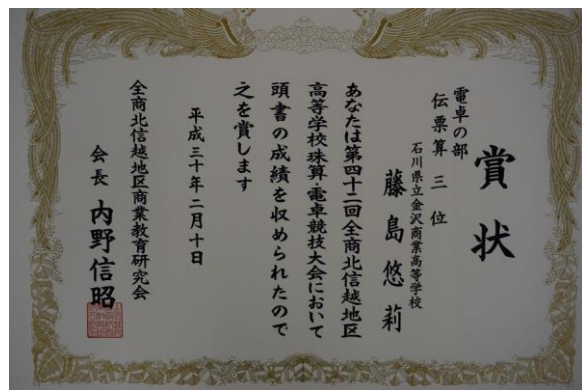 賞状
電卓の部
伝票算 三位
石川県立金沢商業高等学校
藤島悠莉
あなたは第四十二回全商北信越地区
高等学校珠算・電卓競技大会において
頭書の成績を収められたので
之を賞します
平成三十年二月十日
全商北信越地区商業教育研究会
会長 内野信昭